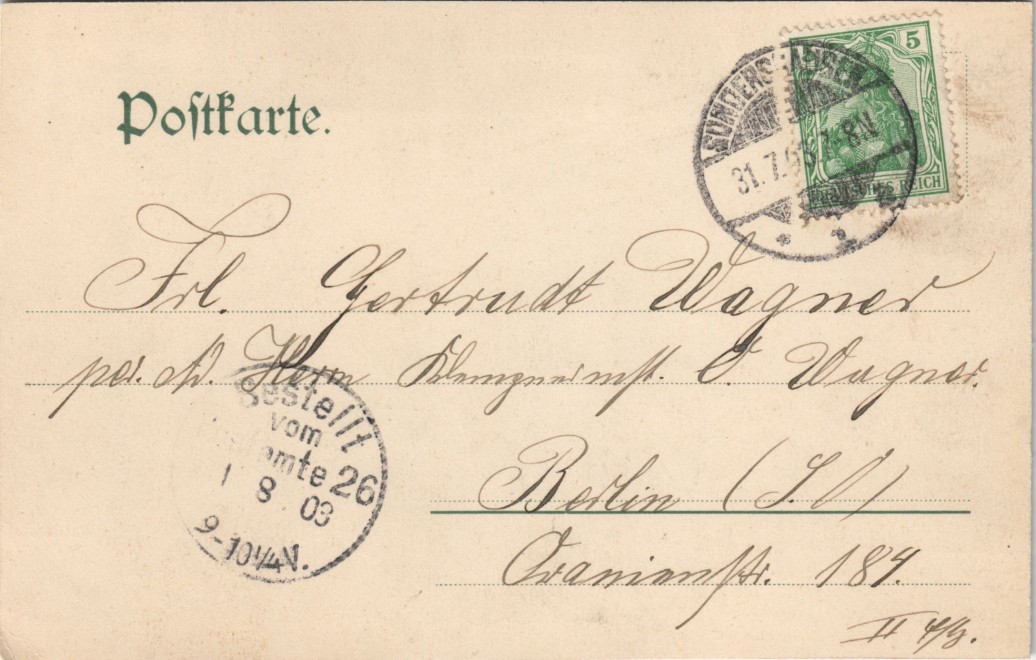 Postkarte.
5
DEUTSCHES REICH
SONDERSHAUSEN
31.7.03 7-8N
Frl. Gertrudt Wagner
per. Ad. Herrn Klempnermst. O. Wagner.
Berlin (S.O)
Oranienstr. 184.
II
gestellt
vom
amte 26
1 8 03
9-10¼N.